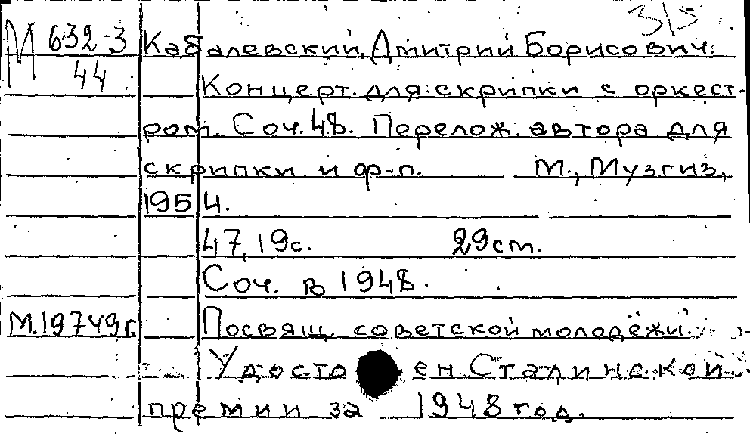 3/5
М 632-3 Кабалевский, Дмитрий Борисович.
44
Концерт для скрипки с оркест-
ром. Соч. 48. Перелож. автора для
скрипки и ф-п. М., Музгиз,
1954.
47, 19 с. 29 см.
Соч. в 1948.
М.19749г. Посвящ. советской молодёжи.
Удостоен Сталинской
премии за 1948 год.